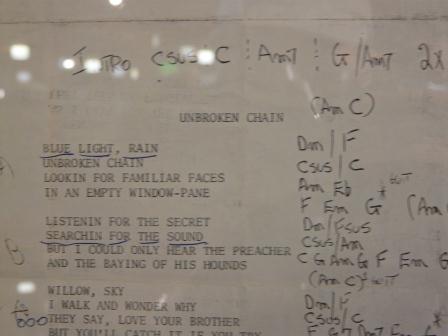 INTRO Csus/C | Am7 | G/Am7 2x
UNBROKEN CHAIN (Am C)
BLUE LIGHT, RAIN Dm/F
UNBROKEN CHAIN Csus/C
LOOKIN FOR FAMILIAR FACES Am Eb
IN AN EMPTY WINDOW-PANE F Em G * (Am
LISTENIN FOR THE SECRET Dm/Fsus
SEARCHIN FOR THE SOUND Csus/Am
BUT I COULD ONLY HEAR THE PREACHER C G Am G F Em G
AND THE BAYING OF HIS HOUNDS (Am C)
B
WILLOW, SKY Dm/F
I WALK AND WONDER WHY Csus/C
THEY SAY, LOVE YOUR BROTHER
BUT YOU'LL CATCH IT IF YOU TRY